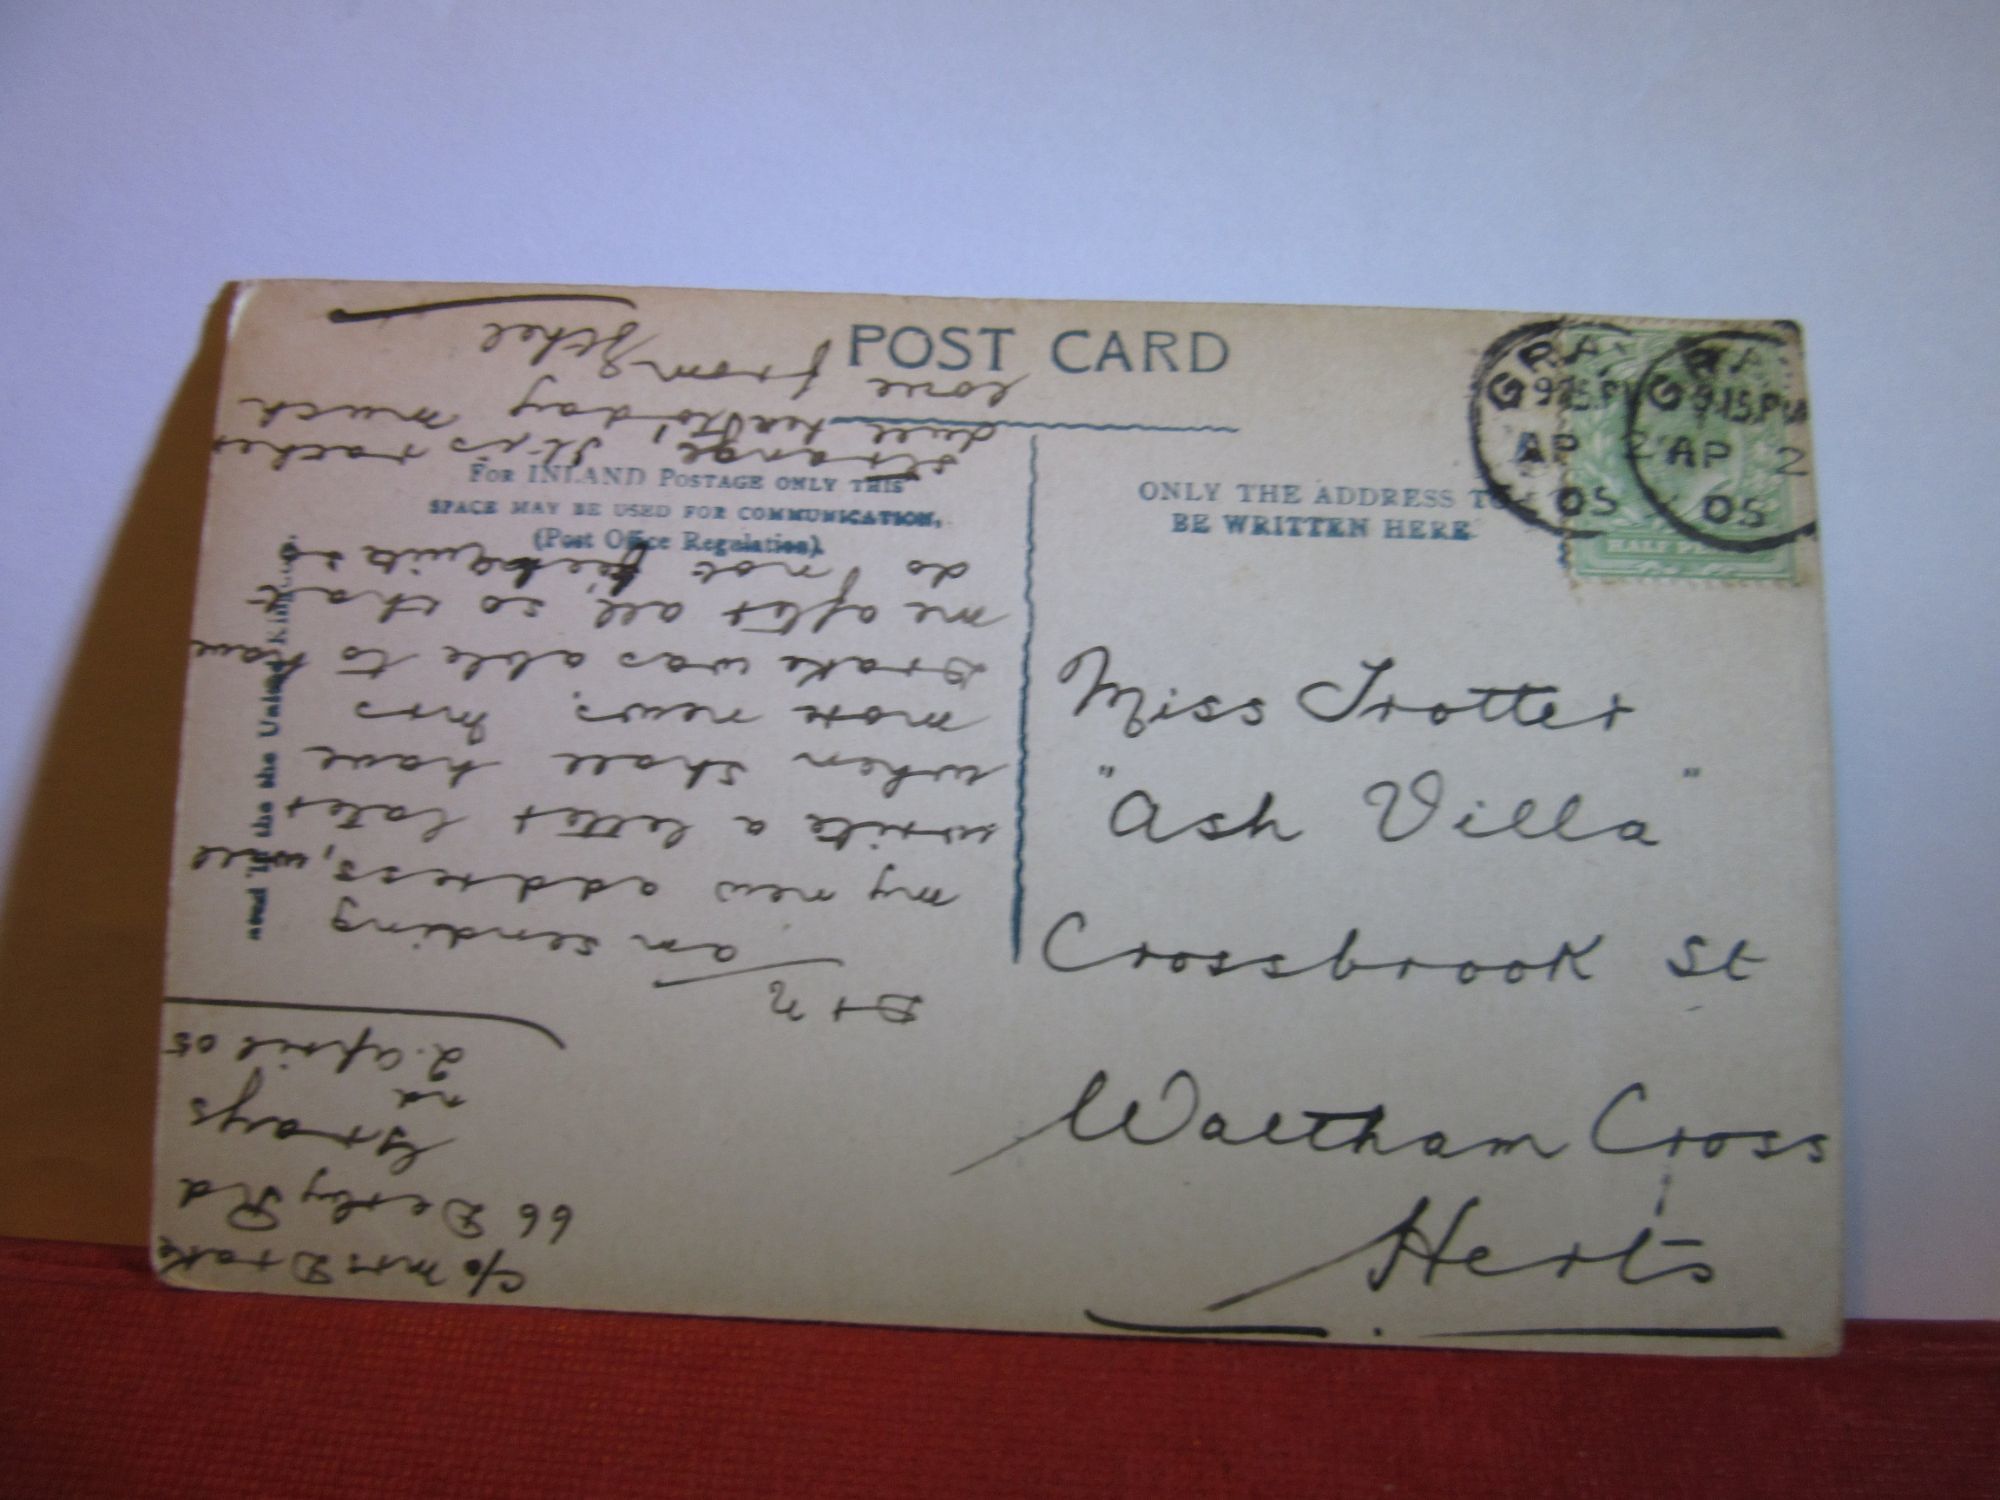 POST CARD
FOR INLAND POSTAGE ONLY THIS
SPACE MAY BE USED FOR COMMUNICATION.
(Post Office Regulation).
ONLY THE ADDRESS TO
BE WRITTEN HERE
GRA
9.15 PM
AP 2
05
GRA
9.15 PM
AP 2
05
HALF PE
Miss Trotter
"Ash Villa"
Crossbrook St
Waltham Cross
Herts
c/o Mrs Drake
66 Derby Rd
Grays
2nd April 05
Dr N
am sending
my new address, will
write a letter later
when shall have
more news. Mrs
Drake was able to have
me after all, so that
do not feel quite so
strange. It is rather
dull here to day much
love from Ethel
in the United